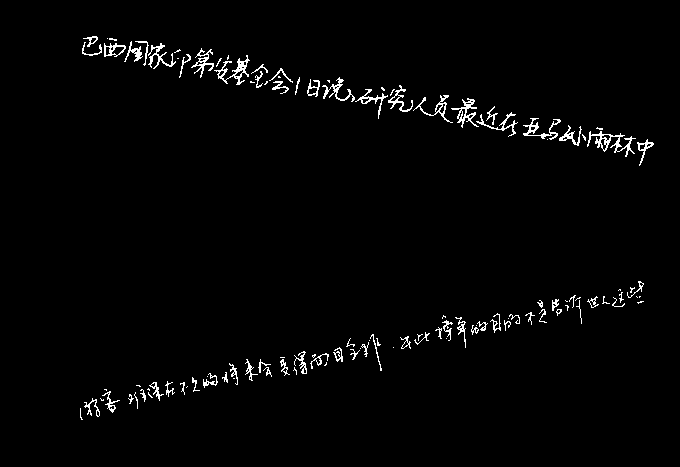 巴西国家印第安基金会1日说,研究人员最近在亚马孙雨林中
游客 在不久的将来会变得面目全非. 的目的不是告诉世人这些